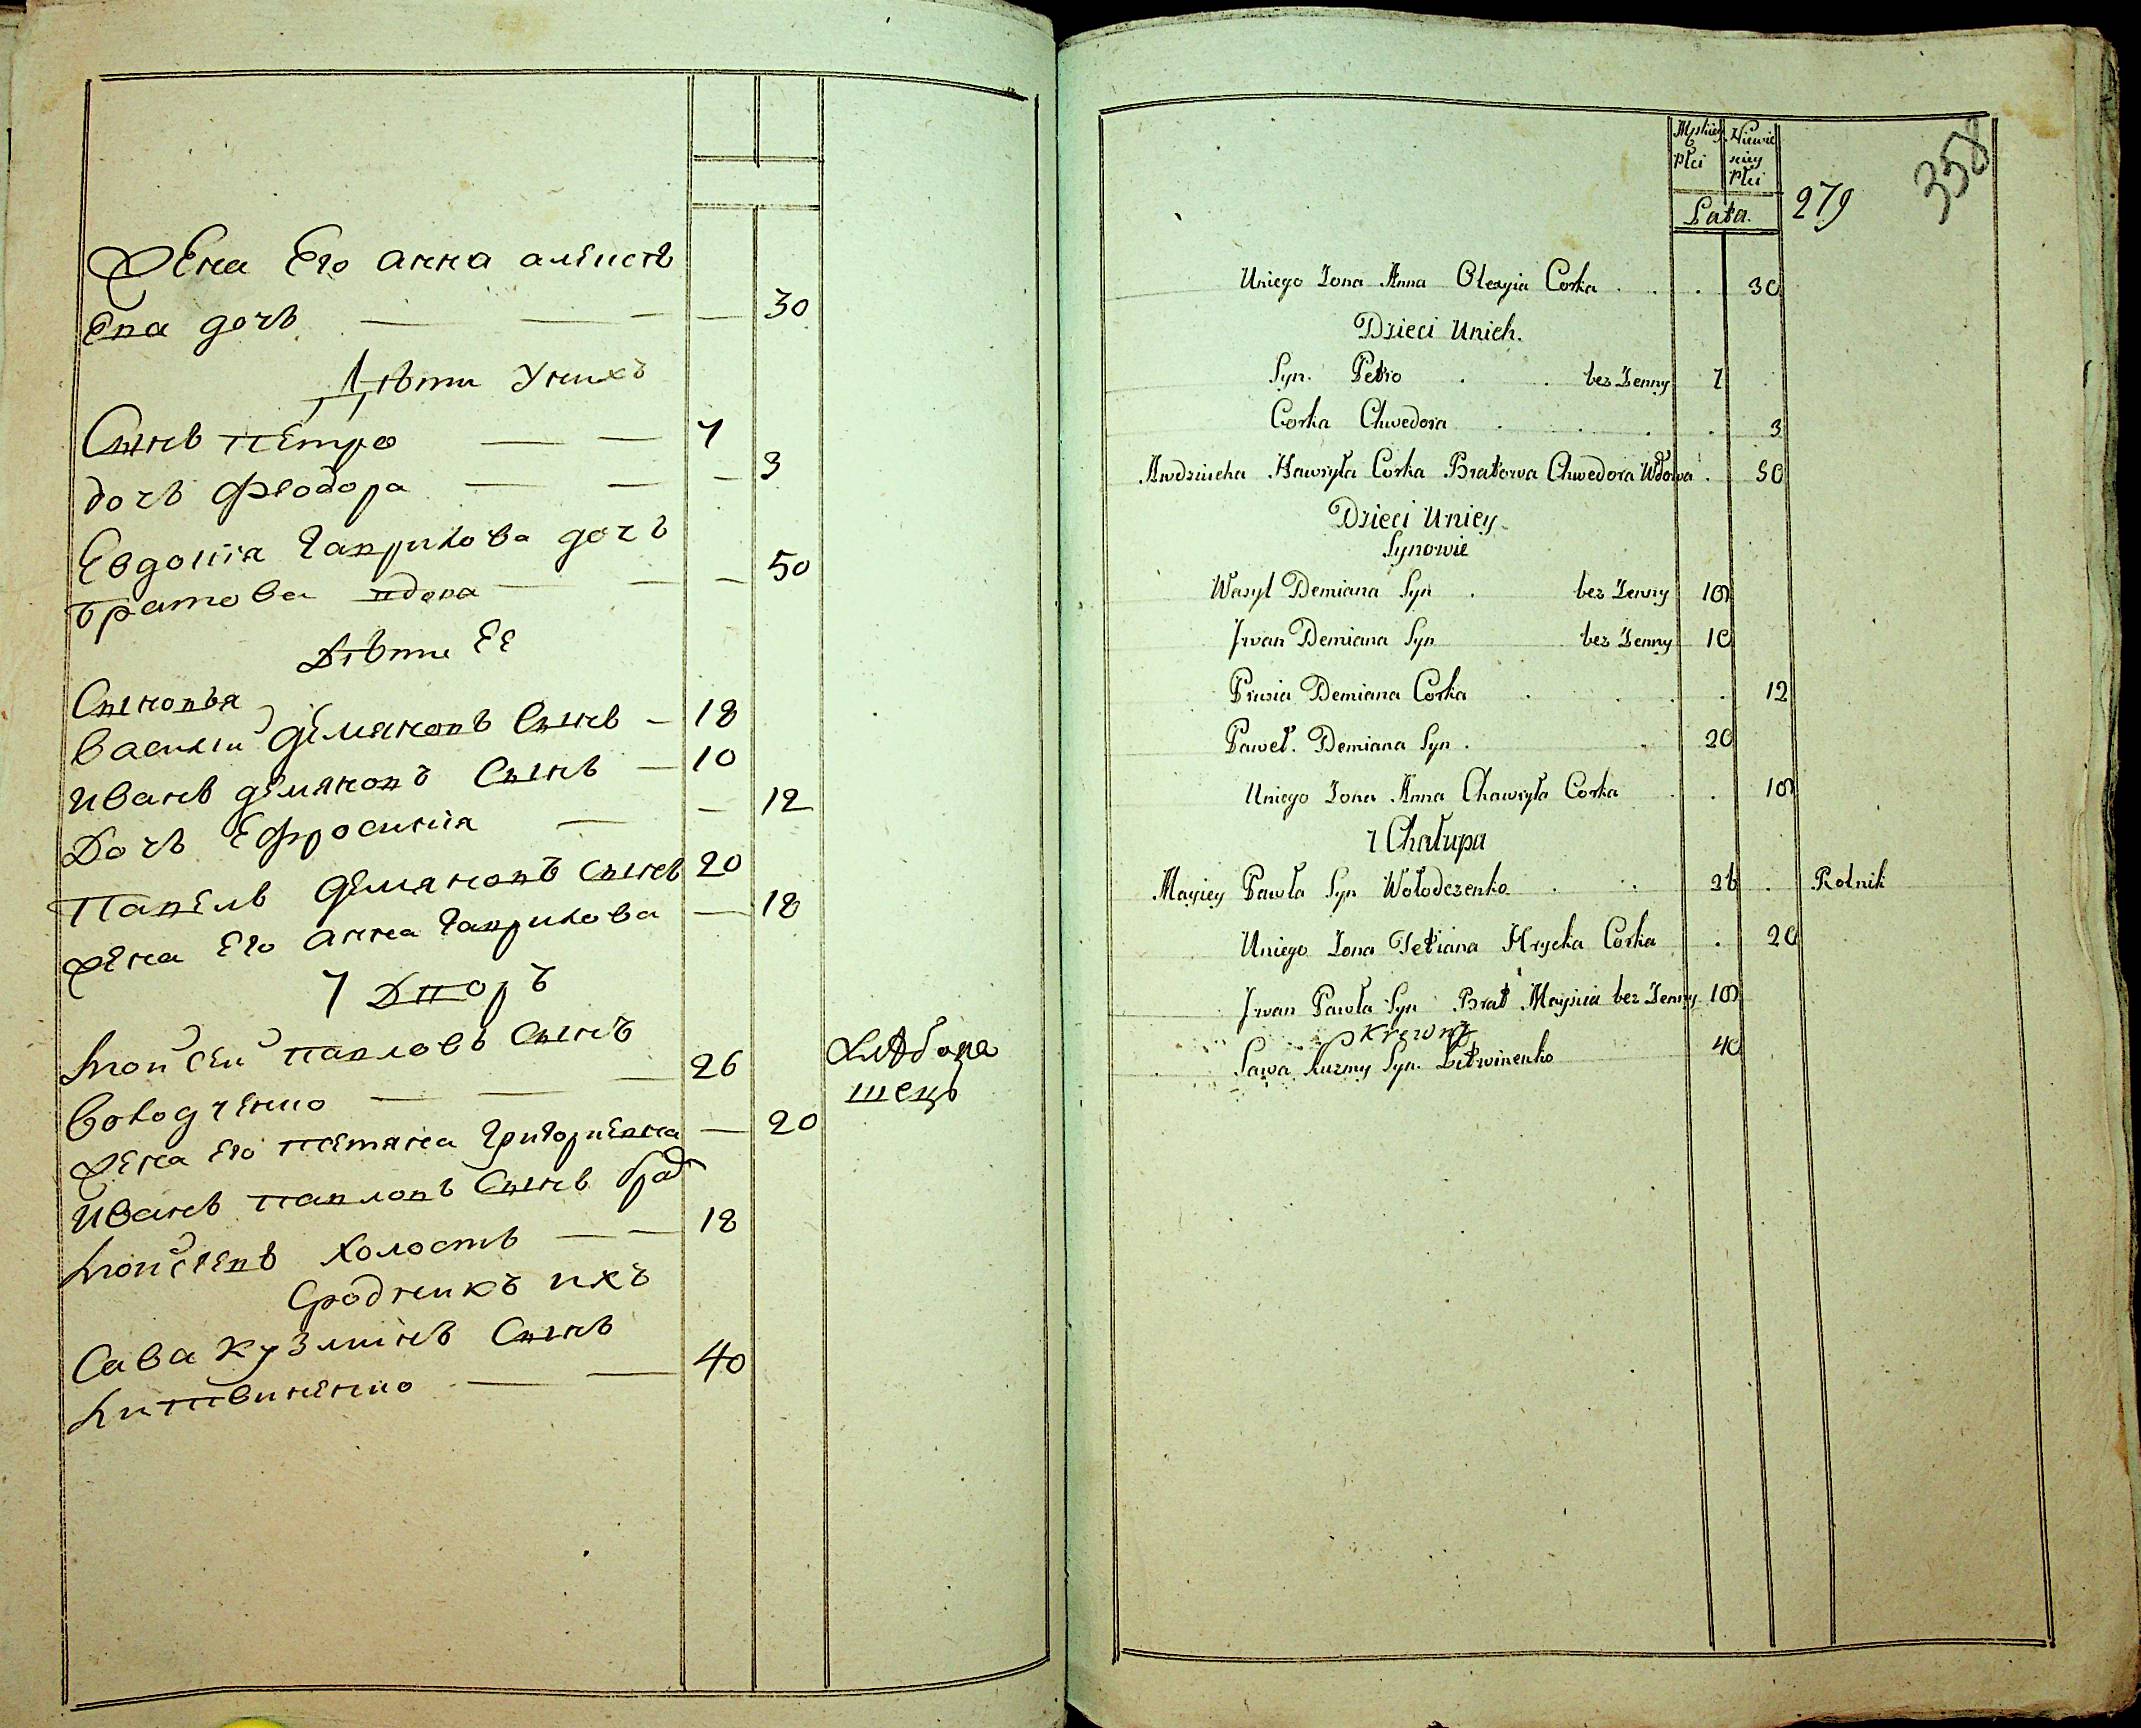 Жена Его анна алексѣ
Ева дочъ — — — — 30
Дѣти Унихъ
Сынъ петро — — 1
дочъ феодора — — — 3
Евдокія гаврилова дочъ
братова вдова — — — 50
Дѣти ЕЕ
Сыновья
василий демяновъ Сынъ — 18
иванъ демяновъ Сынъ — 10
Дочъ Ефросинія — — 12
Павелъ демяновъ сынъ 20
Жена Его анна гаврилова — 18
1 Дворъ
мойсей павловъ сынъ
володченко — — — 26
хлѣбопа
шецъ
Жена Его тетяна григориевна — 20
иванъ павловъ Сынъ брат
мойсеевъ холостъ — — 18
Сродникъ ихъ
Сава кузминъ Сынъ
литвиненко — — 40
Męskiey Płci
Niewieskiey Płci
Lata.
279
358
Uniego Żona Anna Olexyia Corka . . . 30
Dzieci Unich.
Syn. Petro . . bez Żenny 1 .
Corka Chwedora . . . . . 3
Awdziucha Hawryła Corka Bratowa Chwedora Wdowa . 50
Dzieci Uniey
Synowie
Wasyl Demiana Syn . bez Żenny 18
Jwan Demiana Syn bez Żenny 10
Prusia Demiana Corka . . . . 12
Paweł. Demiana Syn . . 20
Uniego Żona Anna Chawryła Corka . . 18
1 Chałupa
Moyiey Pawła Syn Wołodczenko . . 26 . Rolnik
Uniego Żona Tetiana Hrycka Corka . 20
Jwan Pawła Syn Brat Moysieia bez Żenny 18
Krewny
Sawa Kuzmy Syn. Litwinenko 40